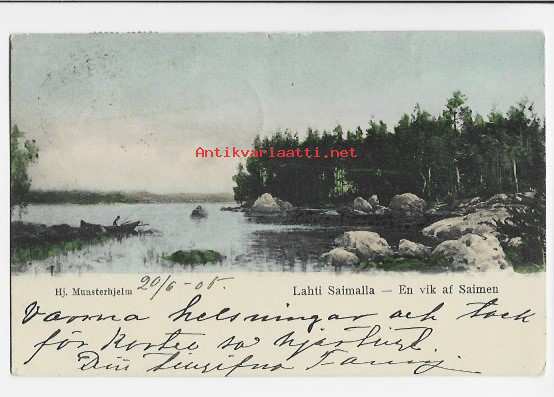 Antikvariaatti.net
Hj. Munsterhjelm
20/6 - 05.
Lahti Saimalla — En vik af Saimen
Varma helsningar och tack
för kortet så hjärtligt
Din